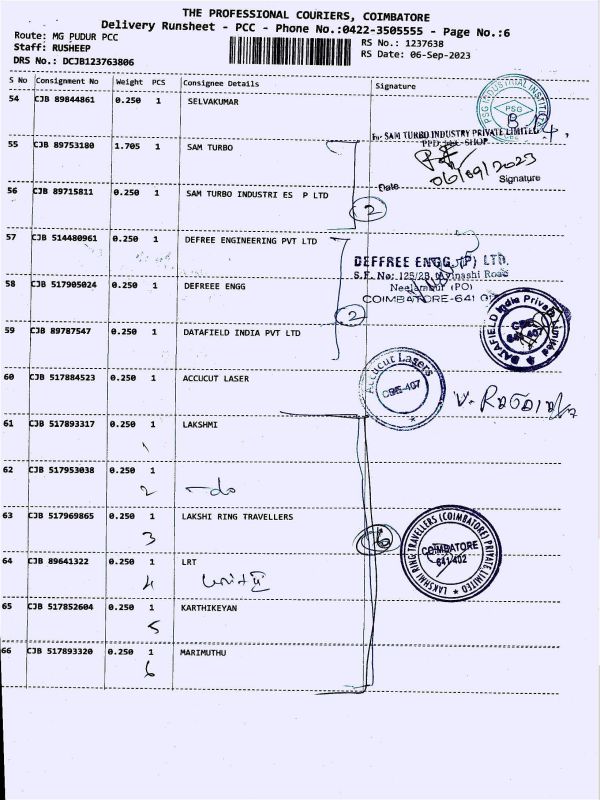 THE PROFESSIONAL COURIERS, COIMBATORE
Delivery Runsheet - PCC - Phone No.:0422-3505555 - Page No.:6
Route: MG PUDUR PCC
Staff: RUSHEEP
RS No.: 1237638
DRS No.: DCJB123763806
RS Date: 06-Sep-2023
S No Consignment No Weight PCS Consignee Details Signature
54 CJB 89844861 0.250 1 SELVAKUMAR
PSG INDUSTRIAL INSTITUTE
PSG
For SAM TURBO INDUSTRY PRIVATE LIMITED
55 CJB 89753180 1.705 1 SAM TURBO
06/09/2023
Date Signature
56 CJB 89715811 0.250 1 SAM TURBO INDUSTRI ES P LTD
2
57 CJB 514480961 0.250 1 DEFREE ENGINEERING PVT LTD
DEFFREE ENGG (P) LTD.
S.F. No: 125/2B, Avinashi Road
Neelambur (PO)
COIMBATORE-641
58 CJB 517905024 0.250 1 DEFREEE ENGG
2
59 CJB 89787547 0.250 1 DATAFIELD INDIA PVT LTD
DATAFIELD India Private Limited
CBE
641 407
60 CJB 517884523 0.250 1 ACCUCUT LASER
Accucut Lasers
CBE-407
61 CJB 517893317 0.250 1 LAKSHMI
1
62 CJB 517953038 0.250 1
2 do
63 CJB 517969865 0.250 1 LAKSHI RING TRAVELLERS
3
6
LAKSHMI RING TRAVELLERS (COIMBATORE) PRIVATE LIMITED
COIMBATORE
641 402
64 CJB 89641322 0.250 1 LRT
4
65 CJB 517852604 0.250 1 KARTHIKEYAN
5
66 CJB 517893320 0.250 1 MARIMUTHU
6